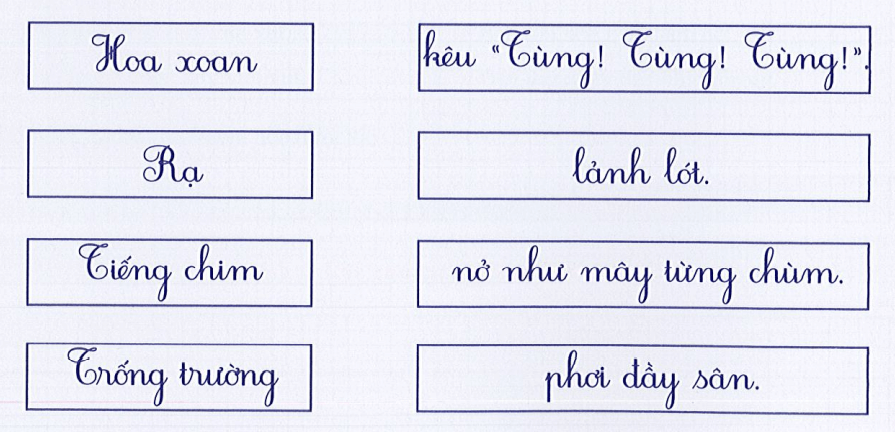 Hoa xoan
kêu "Tùng! Tùng! Tùng!".
Rạ
lảnh lót.
Tiếng chim
nở như mây từng chùm.
Trống trường
phơi đầy sân.